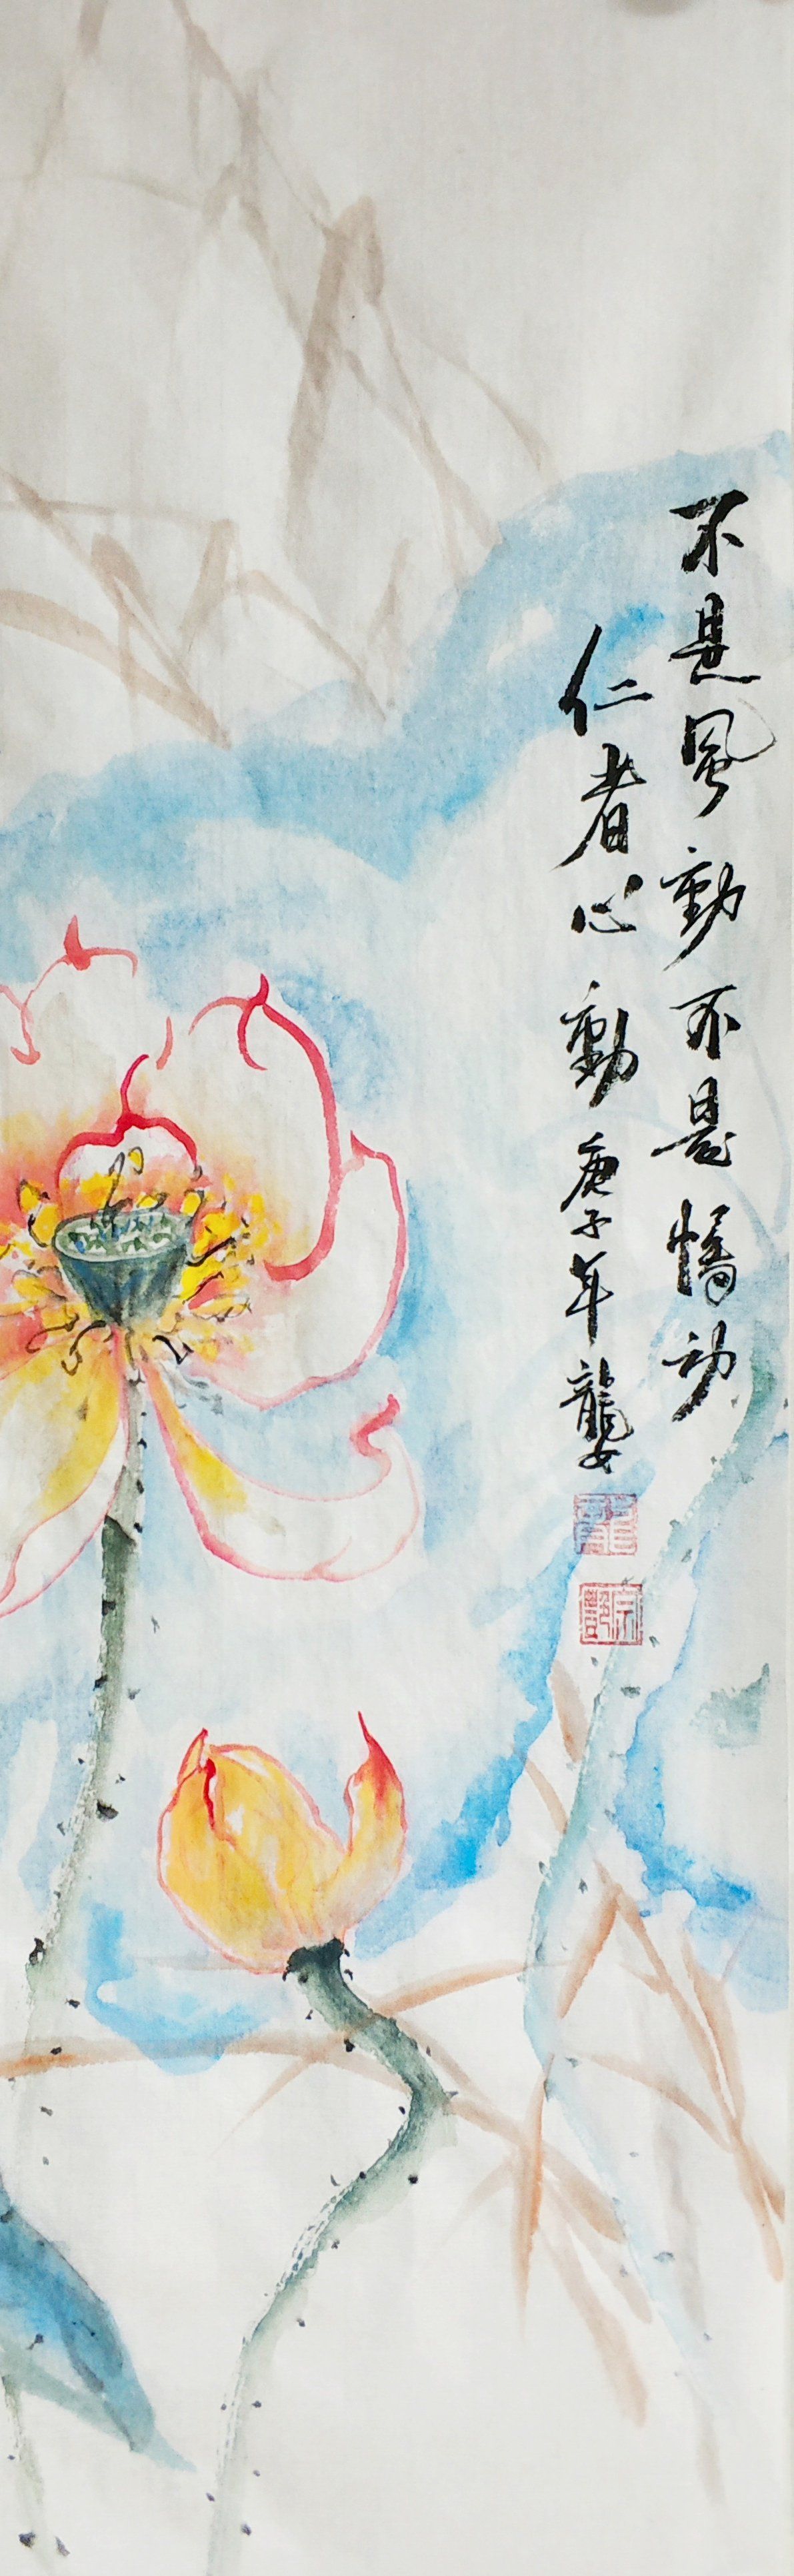 不是風動不是幡动
仁者心動 庚子年龍女